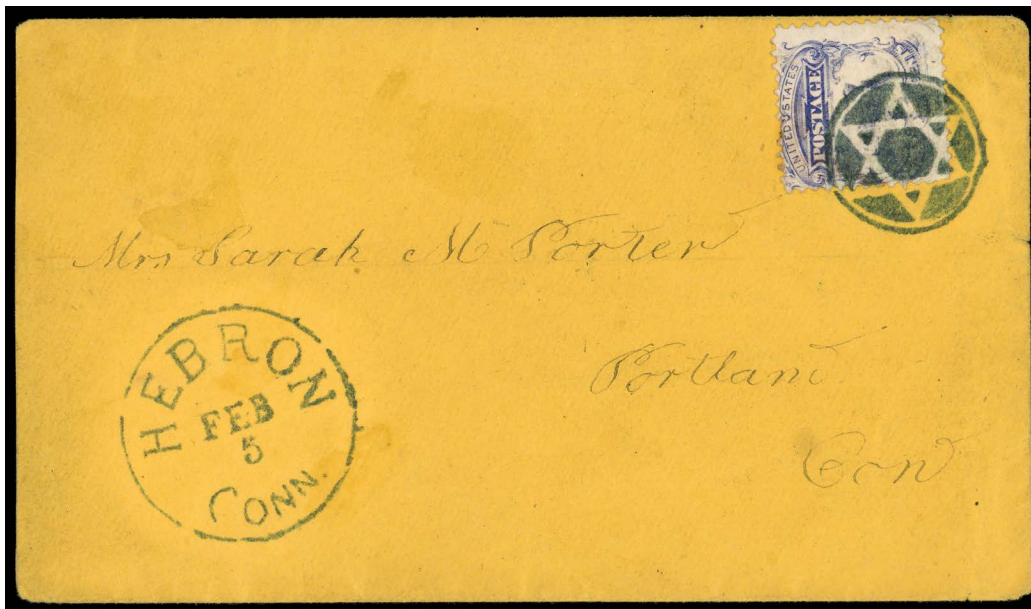 UNITED STATES
POSTAGE
Mrs Sarah M Porter
Portland
Con
HEBRON
FEB
5
CONN.